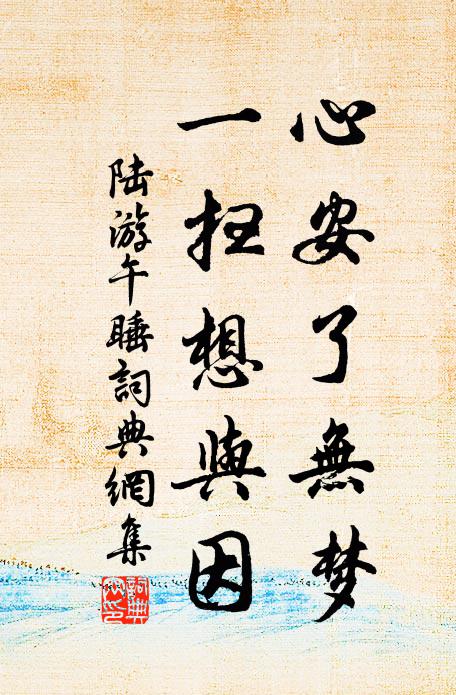 心安了無梦
一扫想與因
陆游午睡詞典網集